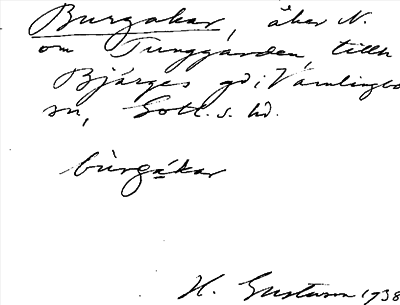 Burgakar, åker N.
om Tunggården, tillh
Bjärges gd i Vamlingbo
sn, Gotl. s. hd.
bùrgákar
H. Gustavson 1938